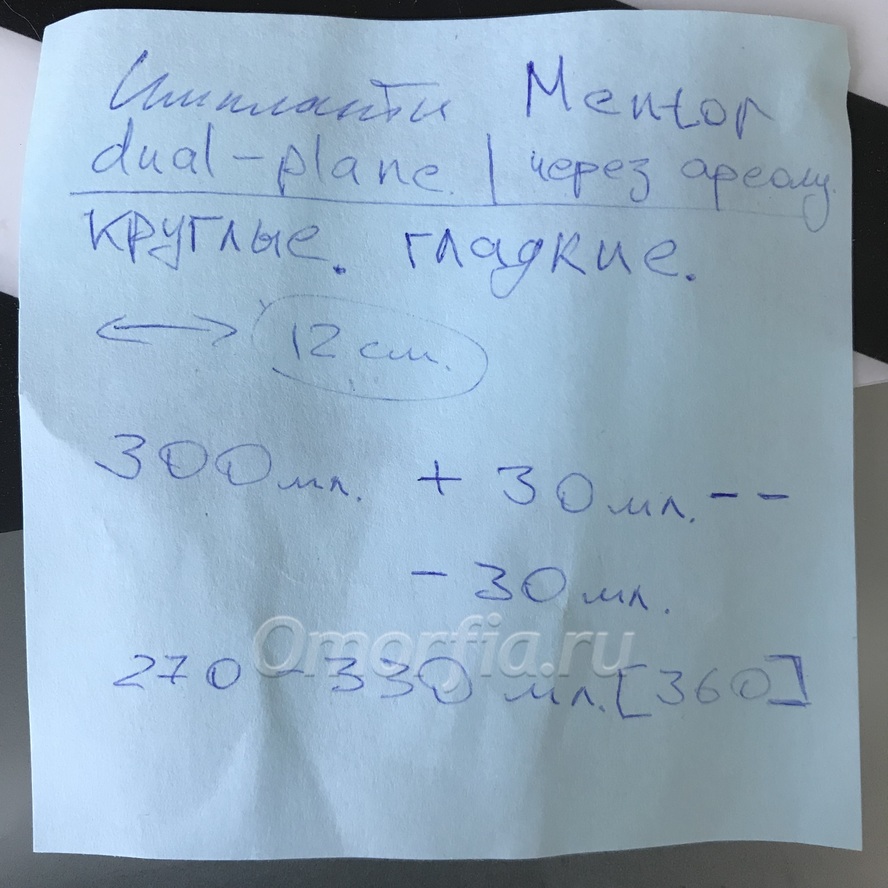 Импланты Mentor
dual-plane. | через ареолу.
круглые. гладкие.
12 см.
300 мл. + 30 мл. - -
- 30 мл.
Omorfia.ru
270 - 330 мл. [360]